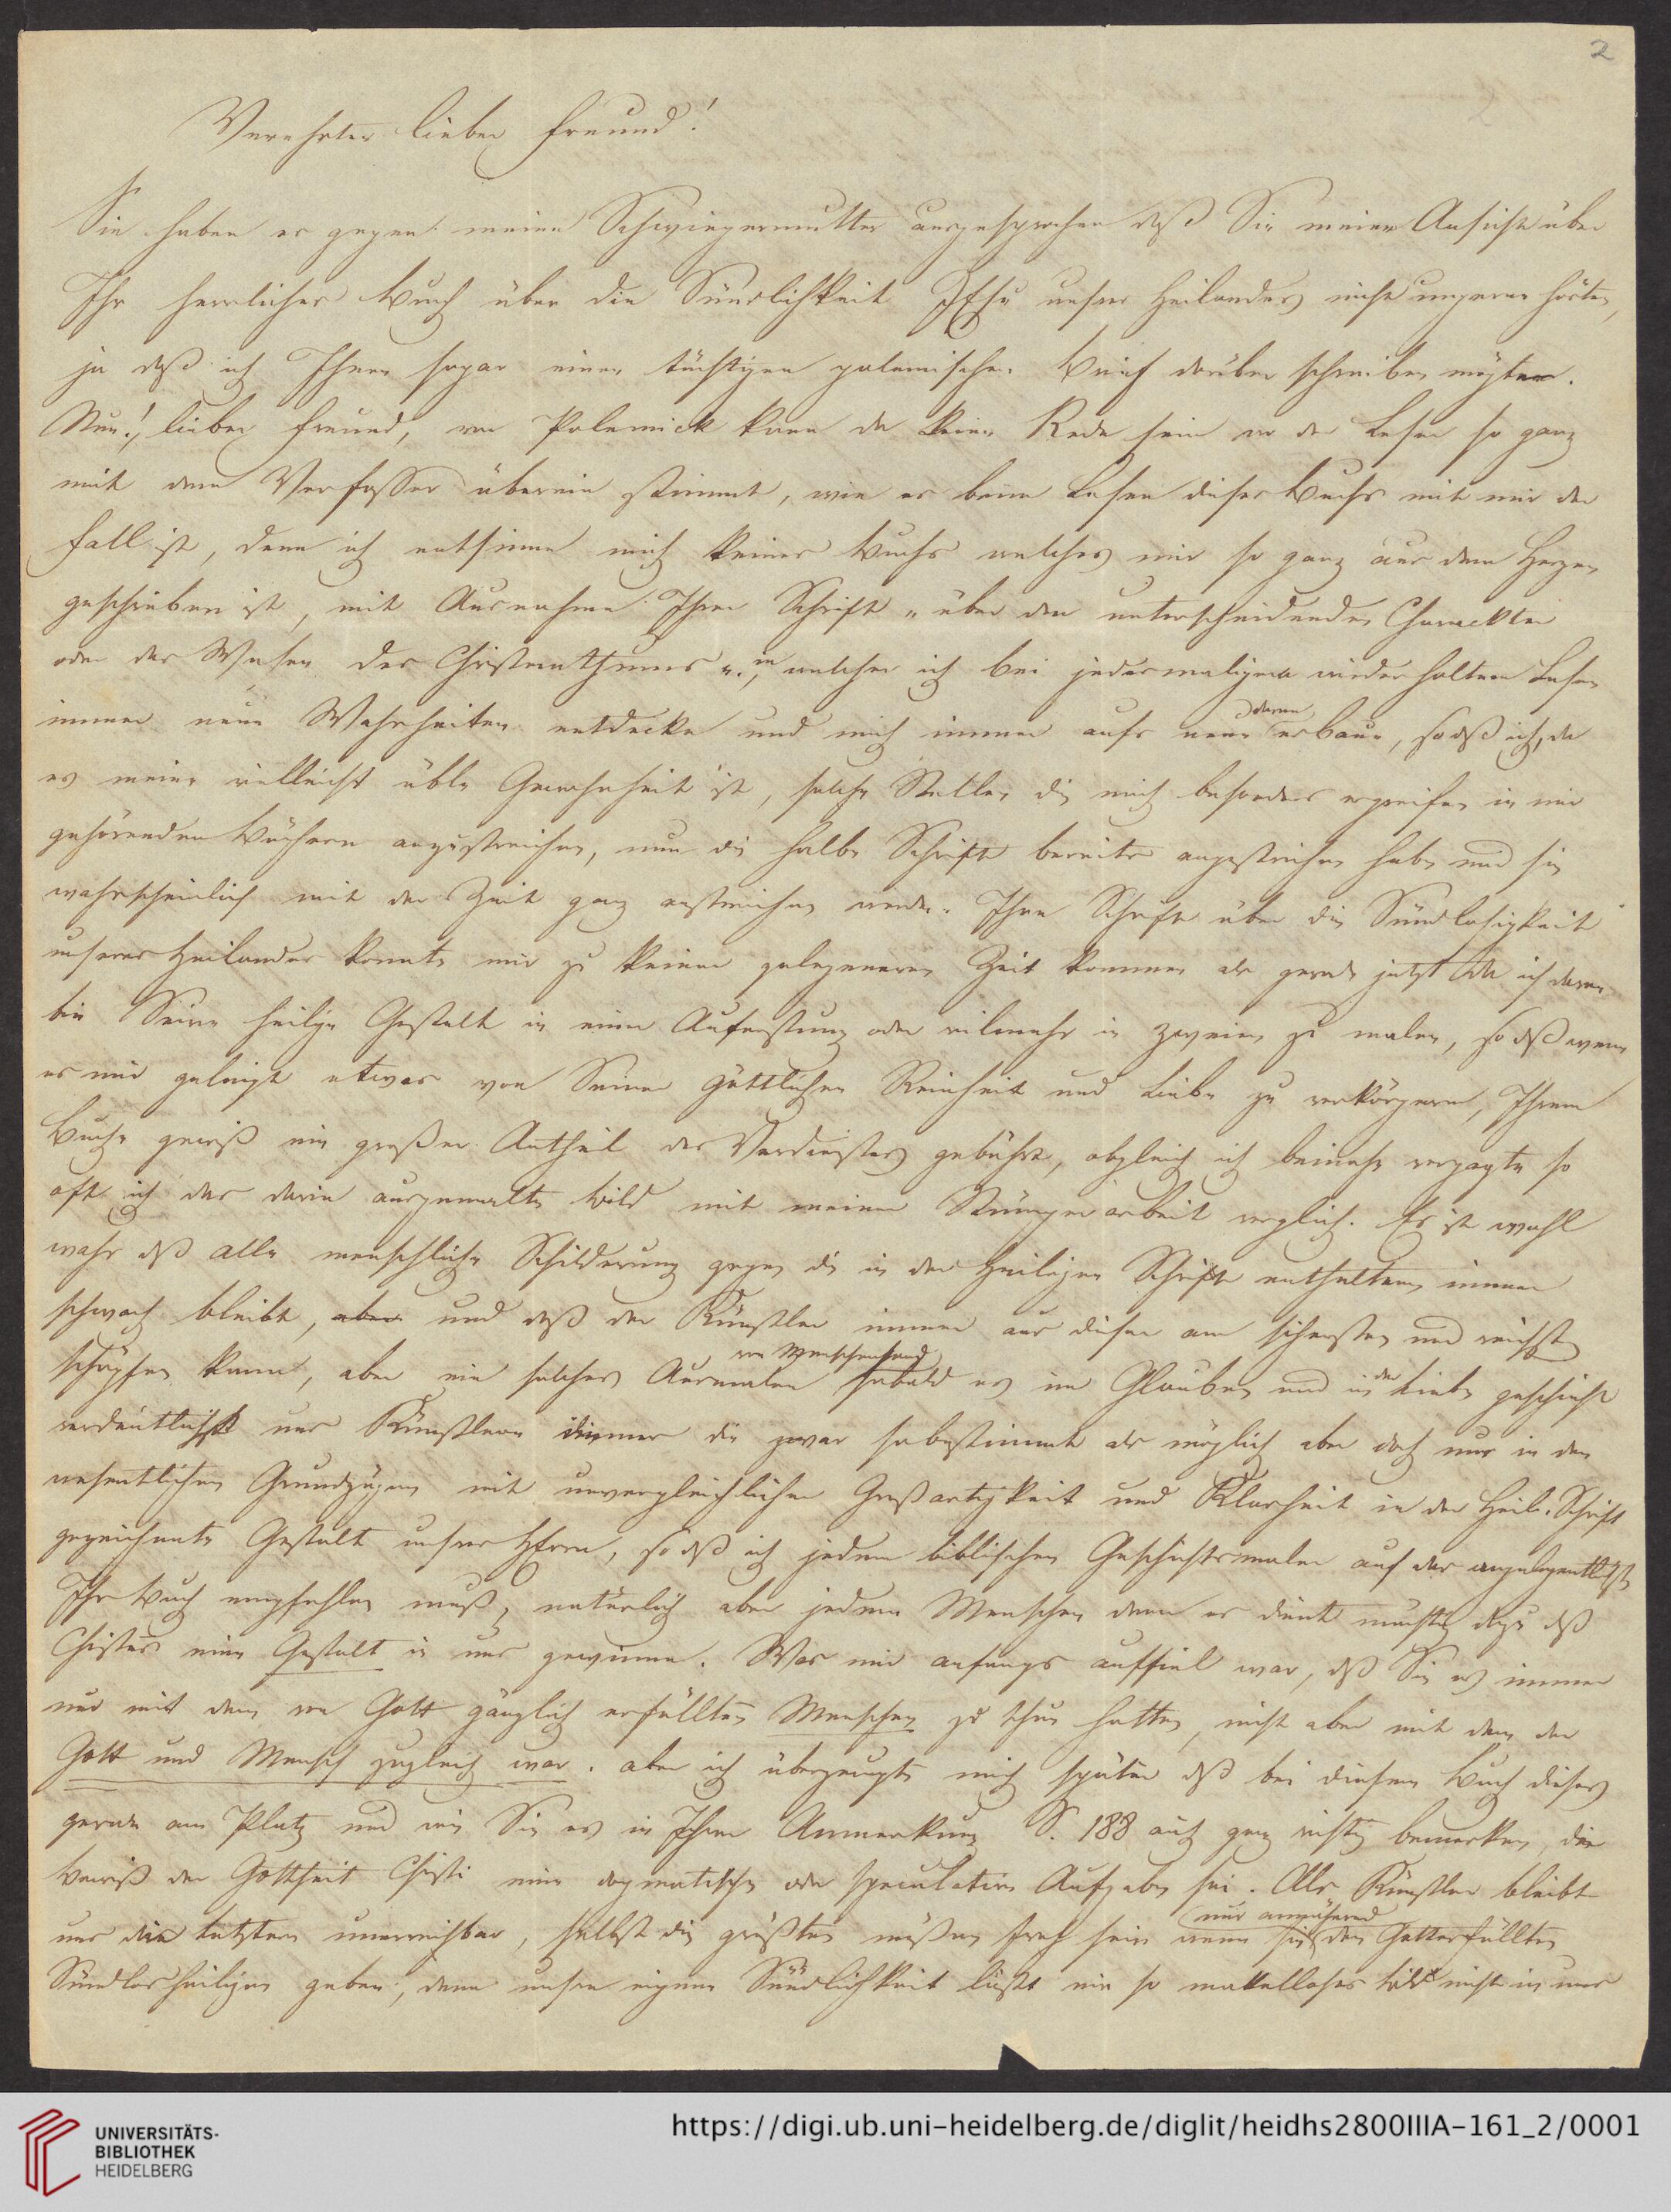 2
Verehrter lieber Freund!
Sie haben es gegen meine Schwiegermutter ausgesprochen daß Sie meine Ansicht über
Ihr herrliches Buch über die Sündlichkeit JEsu unsres Heilandes nicht ungerne hörten,
ja daß ich Ihnen sogar einen tüchtigen polemischen Brief darüber schreiben mögte.
Nun!, lieber Freund, von Polemick kann da keine Rede sein wo der Leser so ganz
mit dem Verfasser überein stimmt, wie es beim Lesen dieses Buchs mit mir der
Fall ist, denn ich entsinne mich keines Buchs welches mir so ganz aus dem Herzen
geschrieben ist, mit Ausnahme Ihrer Schrift „über den unterscheidenden Charackter
oder das Wesen des Christenthums“, in welcher ich bei jedesmaligem wiederholtem Lesen
immer neue Wahrheiten entdecke und mich immer aufs neue daran erbaue, so daß ich, da
es meine vielleicht üble Gewohnheit ist, solche Stellen die mich besonders ergreifen in mir
gehörenden Büchern anzustreichen, nun die halbe Schrift bereits angestrichen habe und sie
wahrscheinlich mit der Zeit ganz anstreichen werde. Ihre Schrift über die Sündlosigkeit
unseres Heilandes konnte mir zu keiner gelegeneren Zeit kommen als gerade jetzt da ich daran
bin Seine heilige Gestalt in einer Auferstehung oder vielmehr in zweien zu malen, so daß wenn
es mir gelingt etwas von Seiner göttlichen Reinheit und Liebe zu verkörpern, Ihrem
Buche gewiß ein großer Antheil des Verdienstes gebührt, obgleich ich beinahe verzagte so
oft ich das darin ausgemalte Bild mit meiner Stümperarbeit verglich. Es ist wohl
wahr daß alle menschliche Schilderung gegen die in der Heiligen Schrift enthaltene immer
schwach bleibt, aber und daß der Künstler immer aus dieser am sichersten und reichsten
schöpfen kann, aber ein solches Ausmalen von Menschenhand sobald es im Glauben und in der Liebe geschieht
verdeutlicht uns Künstlern immer die zwar so bestimmt als möglich aber doch nur in den
wesentlichen Grundzügen mit unvergleichlicher Großartigkeit und Klarheit in der Heil. Schrift
gezeichnete Gestalt unsres HErrn, so daß ich jedem biblischen Geschichtsmaler auf das angelegentlichste
Ihr Buch empfehlen muß, natürlich aber jedem Menschen denn es dient dazu daß
Christus eine Gestalt in uns gewinne. Was mir anfangs auffiel war, daß Sie es immer
nur mit dem von Gott gänzlich erfüllten Menschen zu thun hatten, nicht aber mit dem der
Gott und Mensch zugleich war. aber ich überzeugte mich später daß bei diesem Buch dieses
gerade am Platz und wie Sie es in Ihrer Anmerkung S. 188 auch ganz richtig bemerken, der
Beweiß der Gottheit Christi eine dogmatische oder speculative Aufgabe sei. Als Künstler bleibt
uns die letztere unerreichbar, selbst die größten müßen froh sein wenn sie nur annähernd den Gotterfüllten
Sündlosheiligen geben, denn unsre eigene Sündlichkeit läßt ein so makelloses Bild nicht in uns
UNIVERSITÄTS-
BIBLIOTHEK
HEIDELBERG
https://digi.ub.uni-heidelberg.de/diglit/heidhs2800IIIA-161_2/0001